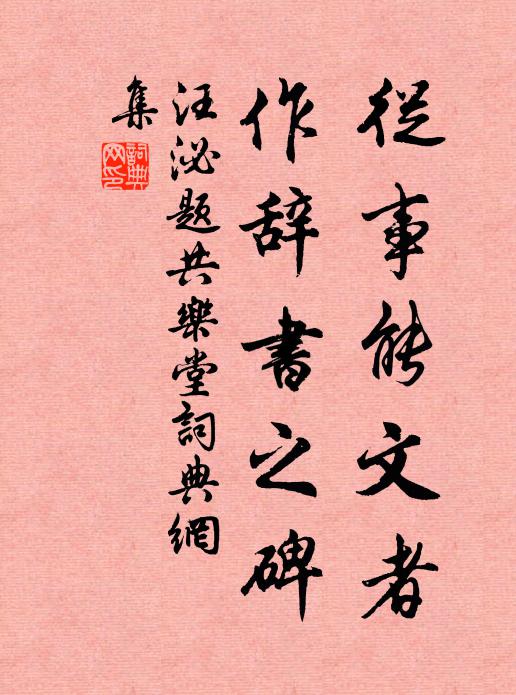 從事能文者
作辞書之碑
汪泌題共樂堂詞典網
集
詞典
网印